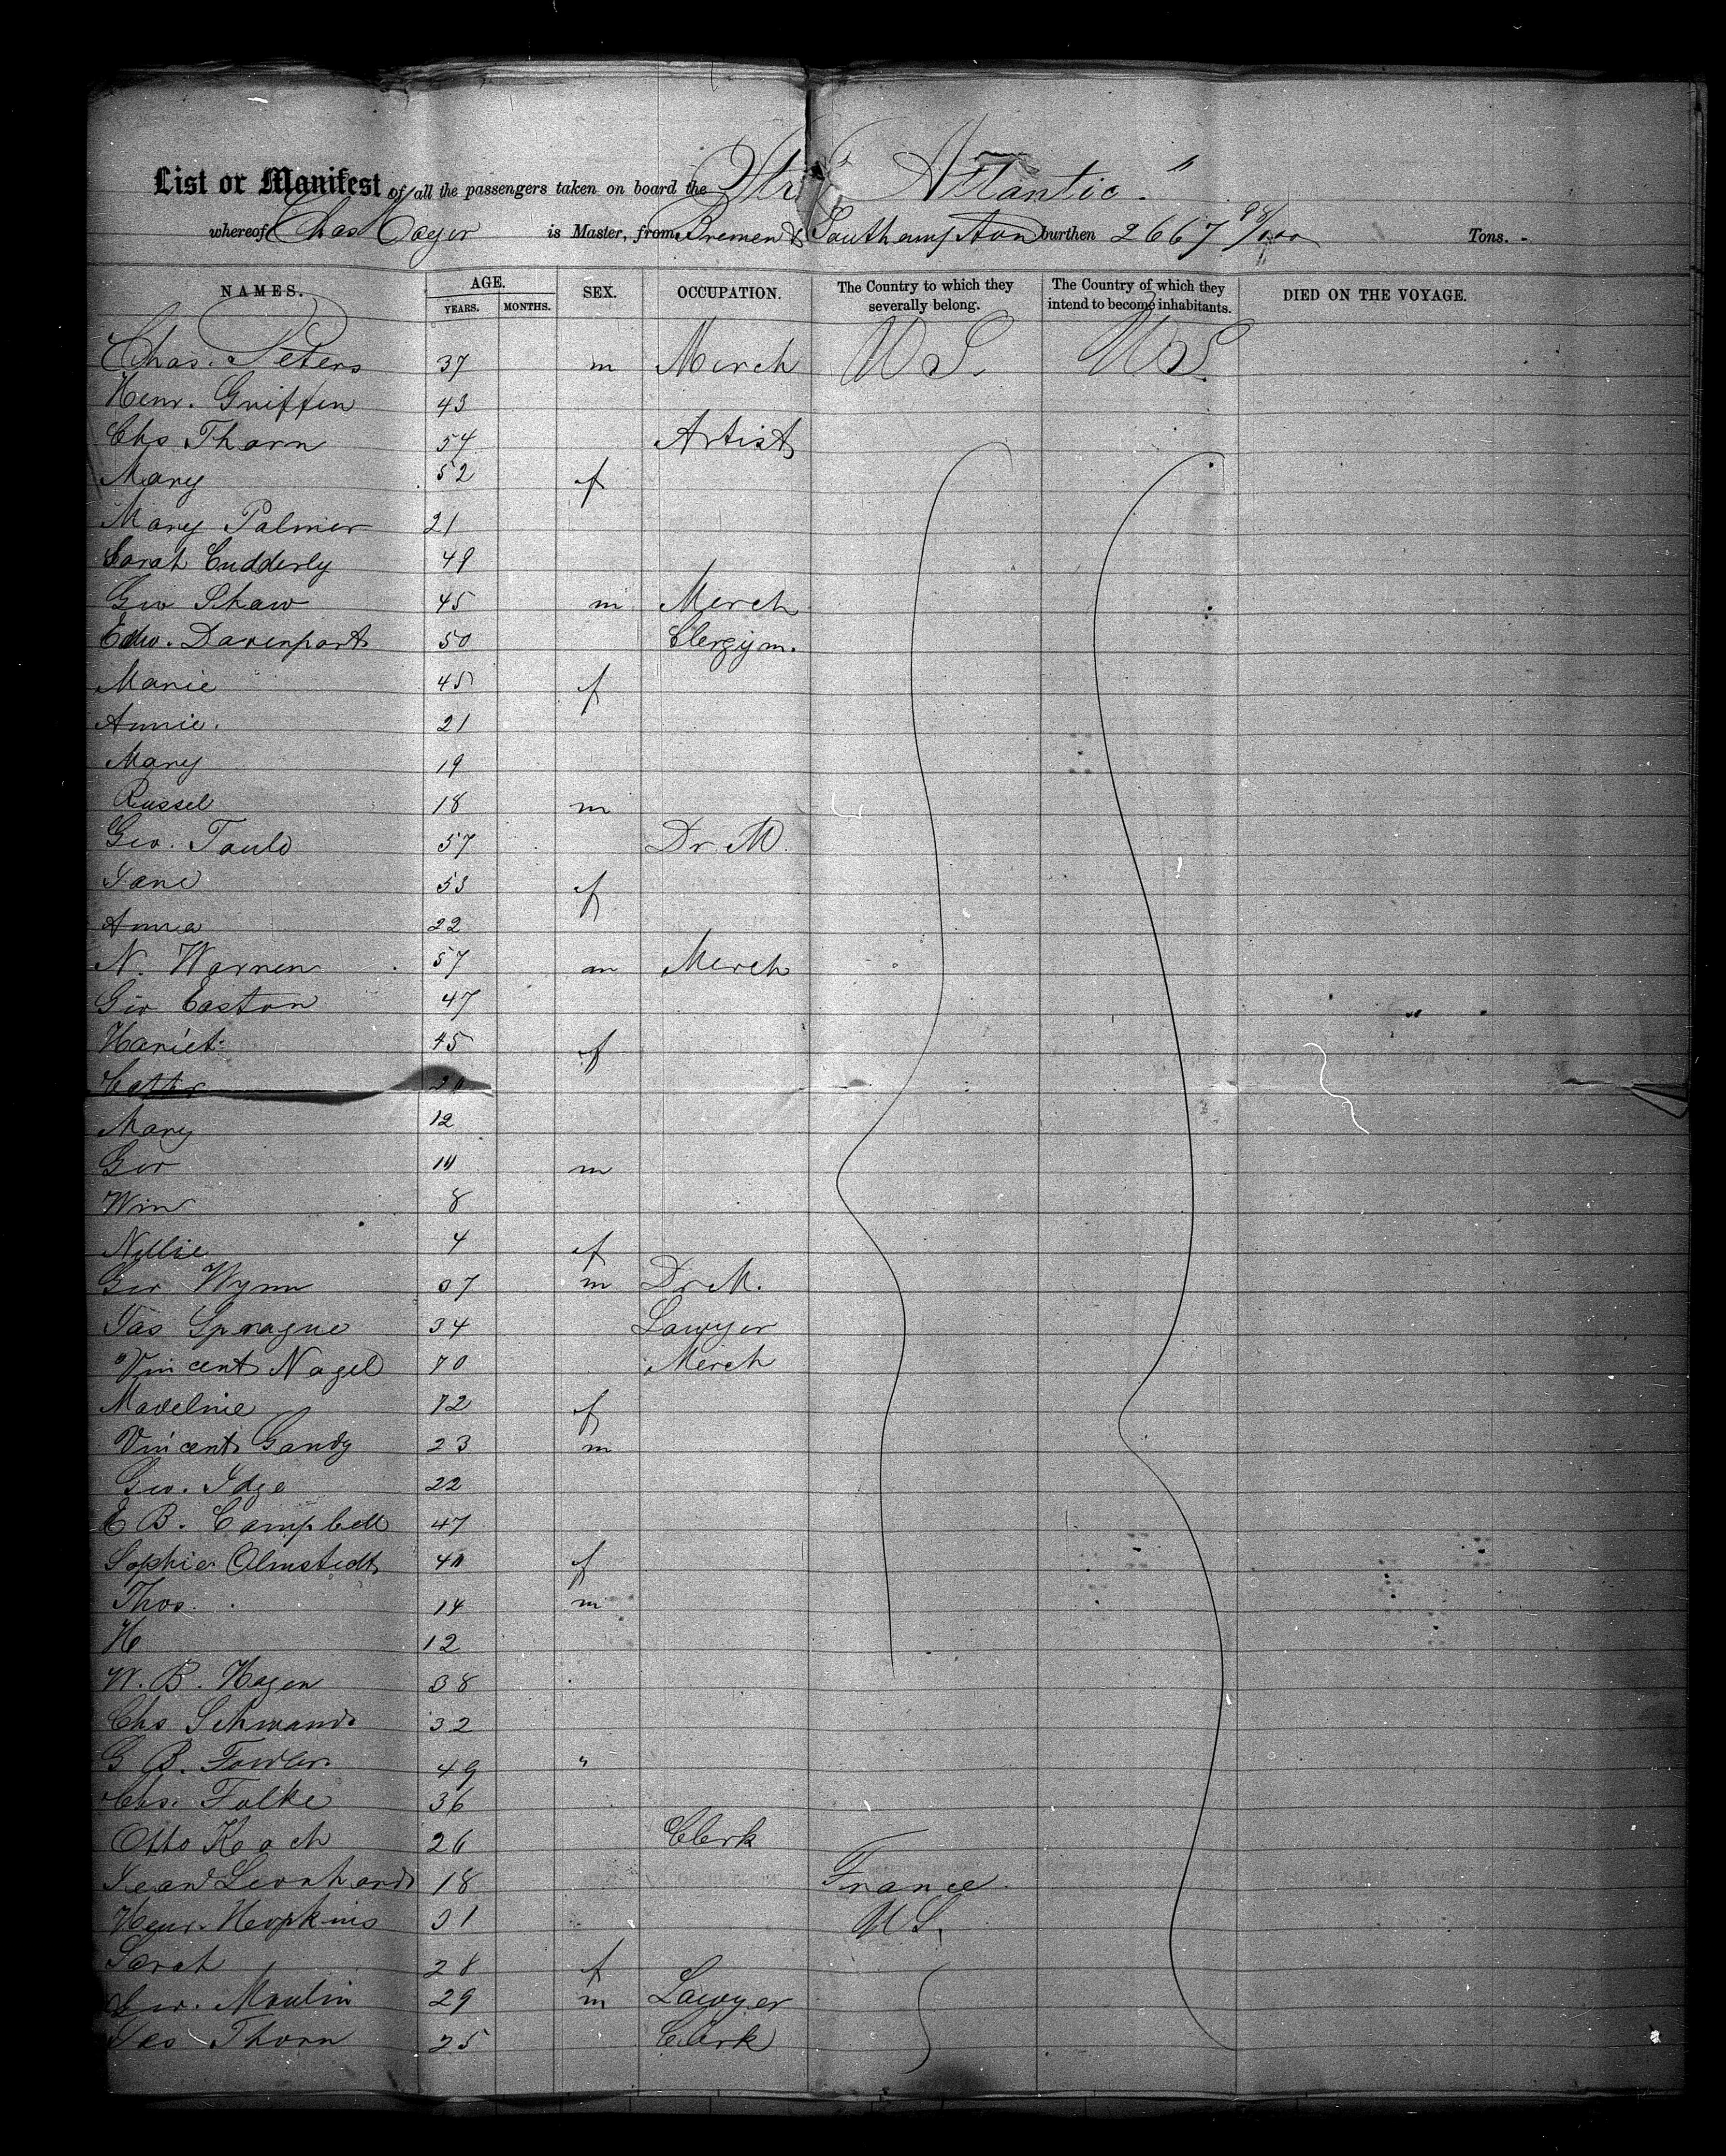 List or Manifest of all the passengers taken on board the Str "Atlantic"
whereof Chas Hoyer is Master, from Bremen & Southampton burthen 2667 98/100 Tons.
NAMES. AGE. YEARS. MONTHS. SEX. OCCUPATION. The Country to which they severally belong. The Country of which they intend to become inhabitants. DIED ON THE VOYAGE.
Chas. Peters 37 m Merch U S. U S
Henr. Griffin 43
Chs Thorn 54 Artist
Mary 52 f
Mary Palmer 21
Sarah Cudderly 49
Geo Shaw 45 m Merch
Edw. Davenport 50 Clergym.
Marie 45 f
Annie. 21
Mary 19
Russel 18 m
Geo. Tauld 57 Dr. M.
Jane 53 f
Anna 22
N. Warren 57 m Merch
Geo Easton 47
Hariet 45 f
20
Mary 12
Geo 10 m
Wm 8
Nellie 4 f
Geo Wynn 37 m Dr M.
Jas Sprague 34 Lawyer
Vincent Nagel 70 Merch
Madeline 72 f
Vincent Gandy 23 m
Geo. Idge 22
E B. Campbell 47
Sophie Olmstedt 40 f
Thos. 14 m
H 12
W. B. Hagen 38
Chs Schwand 32
G B. Fowler 49 "
Chs. Folke 36
Otto Koch 26 Clerk
Jean Leonhard 18 France
Henr. Hopkins 31 U S.
Sarah 28 f
Geo. Moulin 29 m Lawyer
Geo Thorn 25 Clerk